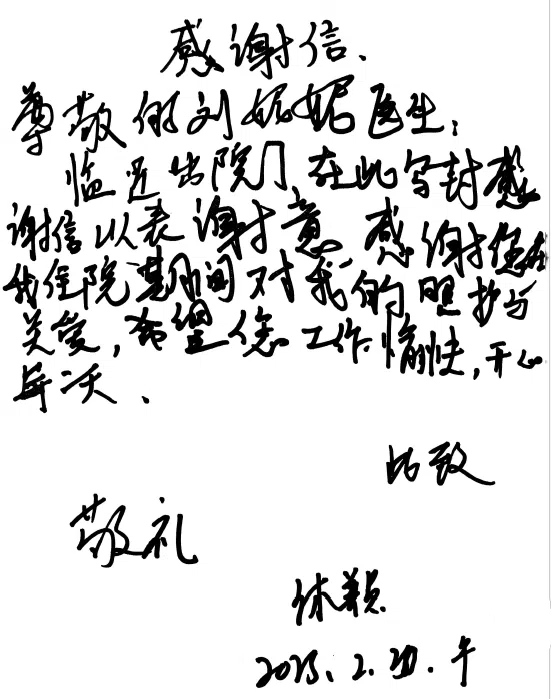 感谢信.
尊敬的刘妮妮医生:
临近出院 在此写封感
谢信以表谢意 感谢您在
我住院期间对我的照护与
关爱,希望您工作愉快,开心
每天.
此致
敬礼
2025.2.20.午